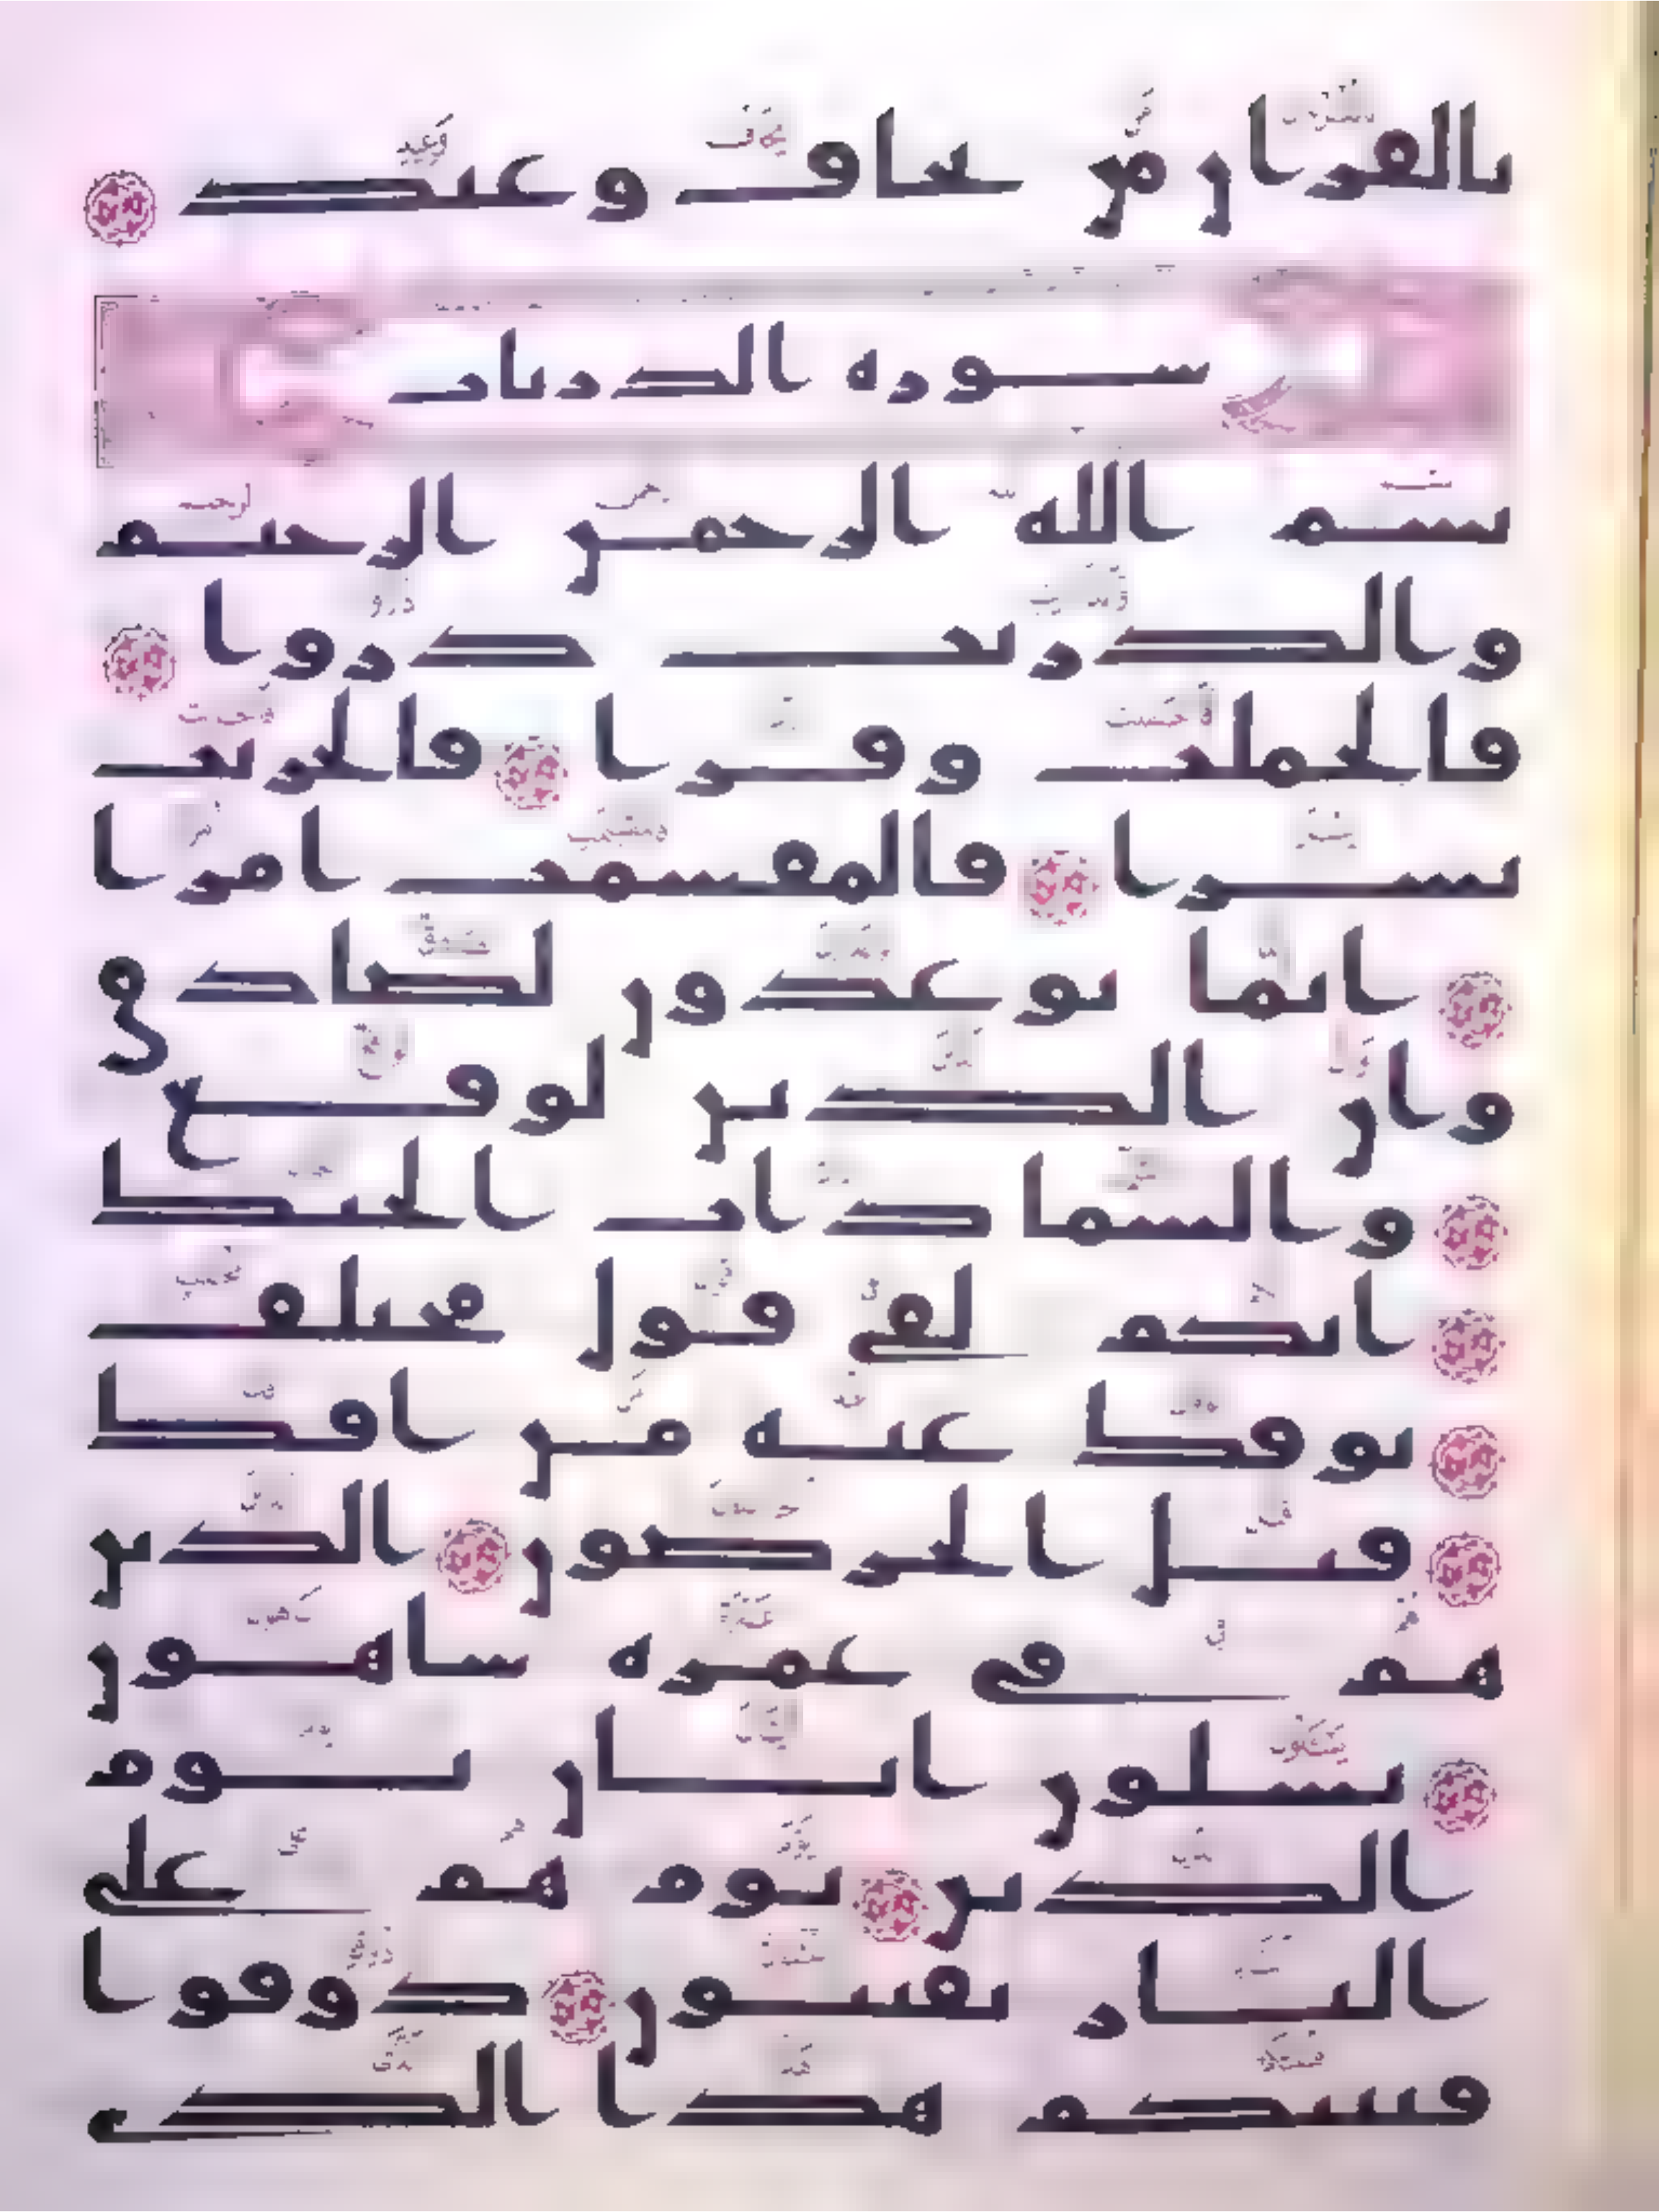 بالقران من يخاف وعيد
سورة الذريات
بسم الله الرحمن الرحيم
والذريت ذروا
فالحملت وقرا فالجريت
يسرا فالمقسمت امرا
انما توعدون لصادق
وان الدين لوقع
والسما ذات الحبك
انكم لفي قول مختلف
يوفك عنه من افك
قتل الخرصون الذين
هم في غمرة ساهون
يسلون ايان يوم
الدين يوم هم على
النار يفتنون ذوقوا
فتنتكم هذا الذي